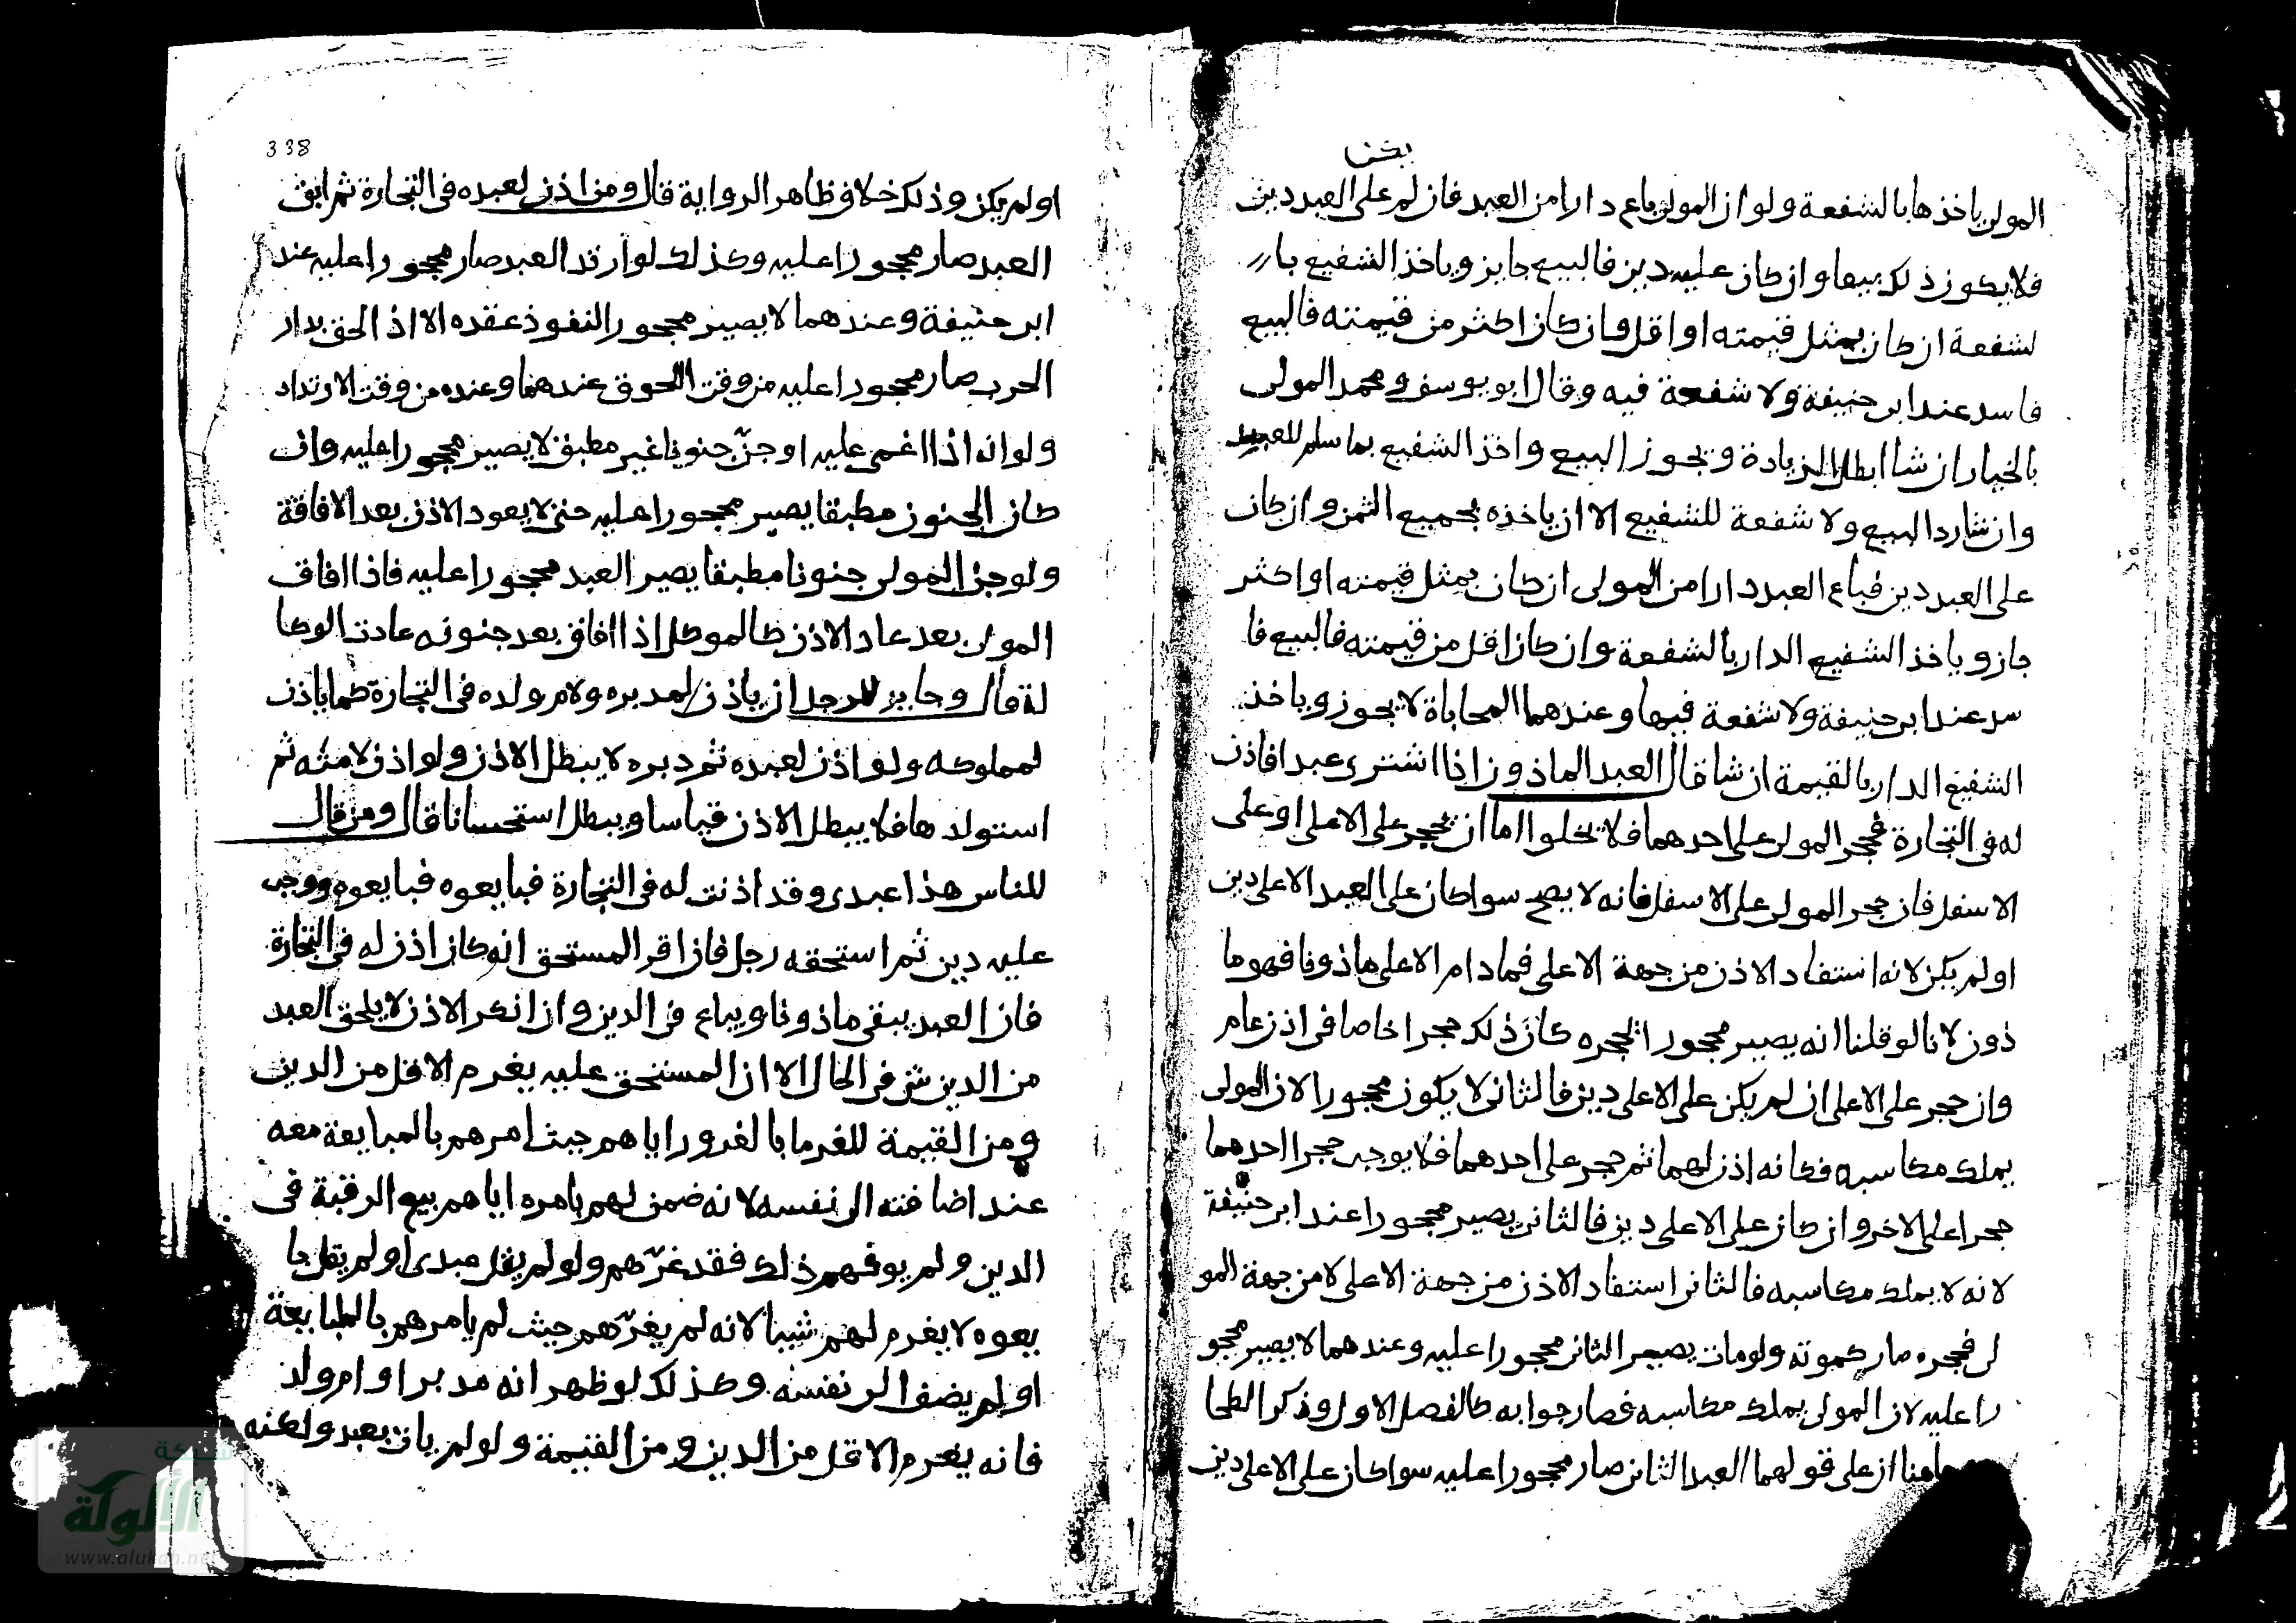 يكن
المولى ياخذها بالشفعة ولو ان المولى باع دارا من العبد فان لم على العبد دين
فلا يكون ذلك بيعا وان كان عليه دين فالبيع جايز وياخذ الشفيع با
لشفعة ان كان بمثل قيمته او اقل وان كان اكثر من قيمته فالبيع
فاسد عند ابى حنيفة ولا شفعة فيه وقال ابو يوسف ومحمد المولى
بالخيار ان شا ابطل الزيادة ويجوز البيع واخذ الشفيع بما سلم للعبد
وان شا رد البيع ولا شفعة للشفيع الا ان ياخذه بجميع الثمن وان كان
على العبد دين فباع العبد دارا من المولى ان كان بمثل قيمته او اكثر
جاز وياخذ الشفيع الدار بالشفعة وان كان اقل من قيمته فالبيع فا
سد عند ابى حنيفة ولا شفعة فيها وعندهما المحاباة لا يجوز وياخذ
الشفيع الدار بالقيمة ان شا قال العبد الماذون اذا اشترى عبدا فاذن
له فى التجارة فحجر المولى على احدهما فلا يخلوا اما ان يحجر على الاعلى او على
الاسفل فان حجر المولى على الاسفل فانه لا يصح سوا كان على العبد الاعلى دين
او لم يكن لانه استفاد الاذن من جهة الاعلى فما دام الاعلى ماذونا فهو ما
ذون لانا لو قلنا انه يصير محجورا بحجره كان ذلك حجرا خاصا فى اذن عام
وان حجر على الاعلى ان لم يكن على الاعلى دين فالثانى لا يكون محجورا لان المولى
يملك مكاسبه فكانه اذن لهما ثم حجر على احدهما فلا يوجب حجرا احدهما
حجرا على الاخر وان كان على الاعلى دين فالثانى يصير محجورا عند ابى حنيفة
لانه لا يملك مكاسبه فالثانى استفاد الاذن من جهة الاعلى لا من جهة المو
لى فحجره صار كموته ولو مات يصير الثانى محجورا عليه وعندهما لا يصير محجو
را عليه لان المولى يملك مكاسبه فصار جوابه كالفصل الاول وذكر الطحا
هاهنا ان على قولهما العبد الثانى صار محجورا عليه سوا كان على الاعلى دين
338
او لم يكن وذلك خلاف ظاهر الرواية قال ومن اذن لعبده فى التجارة ثم ابق
العبد صار محجورا عليه وكذلك لو ارتد العبد صار محجورا عليه عند
ابى حنيفة وعندهما لا يصير محجورا لنفوذ عقده الا اذا لحق بدار
الحرب صار محجورا عليه من وقت اللحوق عندهما وعنده من وقت الارتداد
ولو انه اذا اغمى عليه او جنّ جنونا غير مطبق لا يصير محجورا عليه وان
كان الجنون مطبقا يصير محجورا عليه حتى لا يعود الاذن بعد الافاقة
ولو جن المولى جنونا مطبقا يصير العبد محجورا عليه فاذا افاق
المولى بعد عاد الاذن كالموكل اذا افاق بعد جنونه عادت الوكا
لة قال وجايز للرجل ان ياذن لمدبره ولام ولده فى التجارة كما ياذن
لمملوكه ولو اذن لعبده ثم دبره لا يبطل الاذن ولو اذن لامته ثم
استولدها فلا يبطل الاذن قياسا ويبطل استحسانا قال ومن قال
للناس هذا عبدى وقد اذنت له فى التجارة فبايعوه فبايعوه ووجب
عليه دين ثم استحقه رجل فان اقر المستحق انه كان اذن له فى التجارة
فان العبد يبقى ماذونا ويباع فى الدين وان انكر الاذن لا يلحق العبد
من الدين شى فى الحال الا ان المستحق عليه يغرم الاقل من الدين
ومن القيمة للغرما بالغرور اياهم حيث امرهم بالمبايعة معه
عند اضافته الى نفسه لانه ضمن لهم بامره اياهم بيع الرقبة فى
الدين ولم يوفهم ذلك فقد غرّهم ولو لم يقل عبدى او لم يقل با
يعوه لا يغرم لهم شيا لانه لم يغرّهم حيث لم يامرهم بالمبايعة
او لم يضف الى نفسه وكذلك لو ظهر انه مدبر او ام ولد
فانه يغرم الاقل من الدين ومن القيمة ولو لم يات بعبد ولكنه
شبكة
الألوكة
www.alukah.net